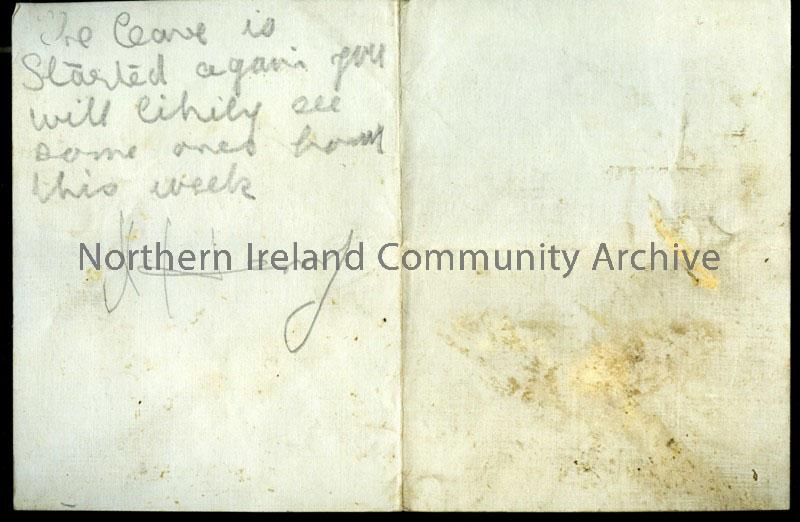 The leave is
Started again you
will likily see
some ones home
this week
Northern Ireland Community Archive